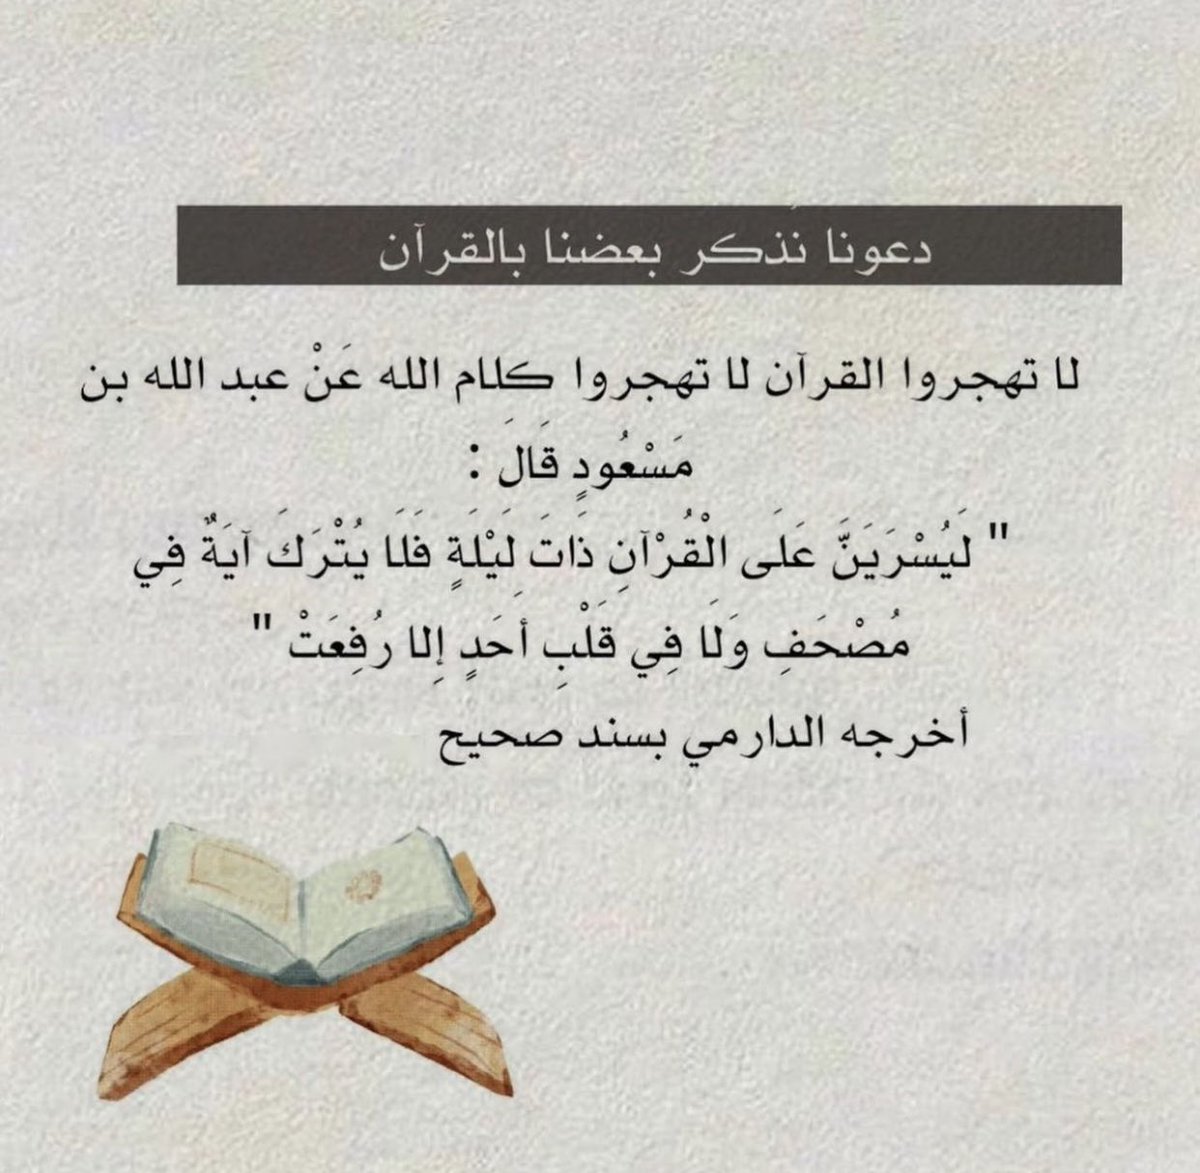 دعونا نَذكر بعضنا بالقرآن
لا تهجروا القرآن لا تهجروا كلام الله عَنْ عبد الله بن
مَسْعُودٍ قَالَ :
" لَيُسْرَيَنَّ عَلَى الْقُرْآنِ ذَاتَ لَيْلَةٍ فَلَا يُتْرَكَ آيَةٌ فِي
مُصْحَفِ وَلَا فِي قَلْبِ أَحَدٍ إِلا رُفِعَتْ "
أخرجه الدارمي بسند صحيح